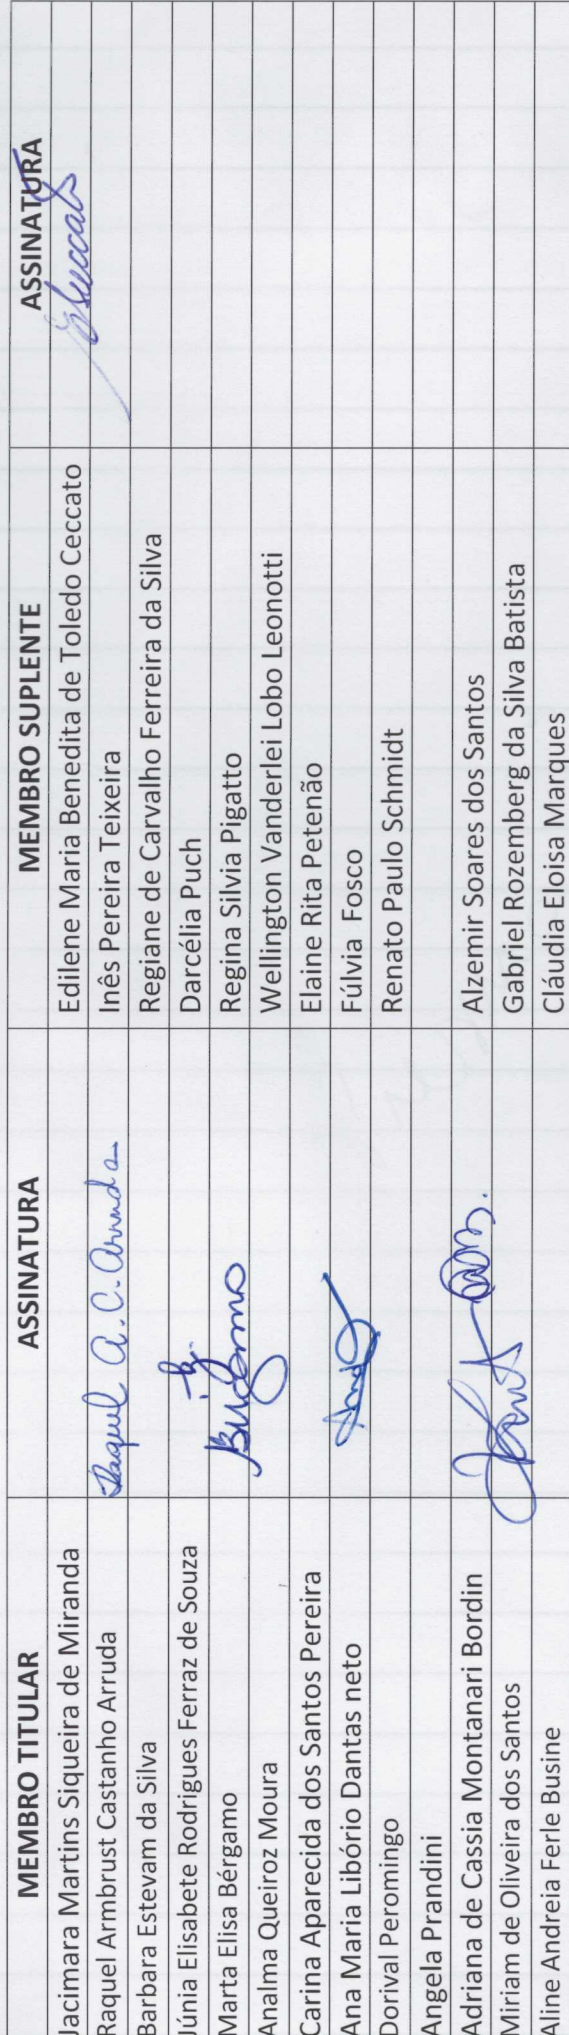 MEMBRO TITULAR ASSINATURA MEMBRO SUPLENTE ASSINATURA
Jacimara Martins Siqueira de Miranda Edilene Maria Benedita de Toledo Ceccato
Raquel Armbrust Castanho Arruda Raquel A. C. Arruda Inês Pereira Teixeira
Barbara Estevam da Silva Regiane de Carvalho Ferreira da Silva
Júnia Elisabete Rodrigues Ferraz de Souza Darcélia Puch
Marta Elisa Bérgamo Regina Silvia Pigatto
Analma Queiroz Moura Wellington Vanderlei Lobo Leonotti
Carina Aparecida dos Santos Pereira Elaine Rita Petenão
Ana Maria Libório Dantas neto Fúlvia Fosco
Dorival Peromingo Renato Paulo Schmidt
Angela Prandini
Adriana de Cassia Montanari Bordin Alzemir Soares dos Santos
Miriam de Oliveira dos Santos Gabriel Rozemberg da Silva Batista
Aline Andreia Ferle Busine Cláudia Eloisa Marques